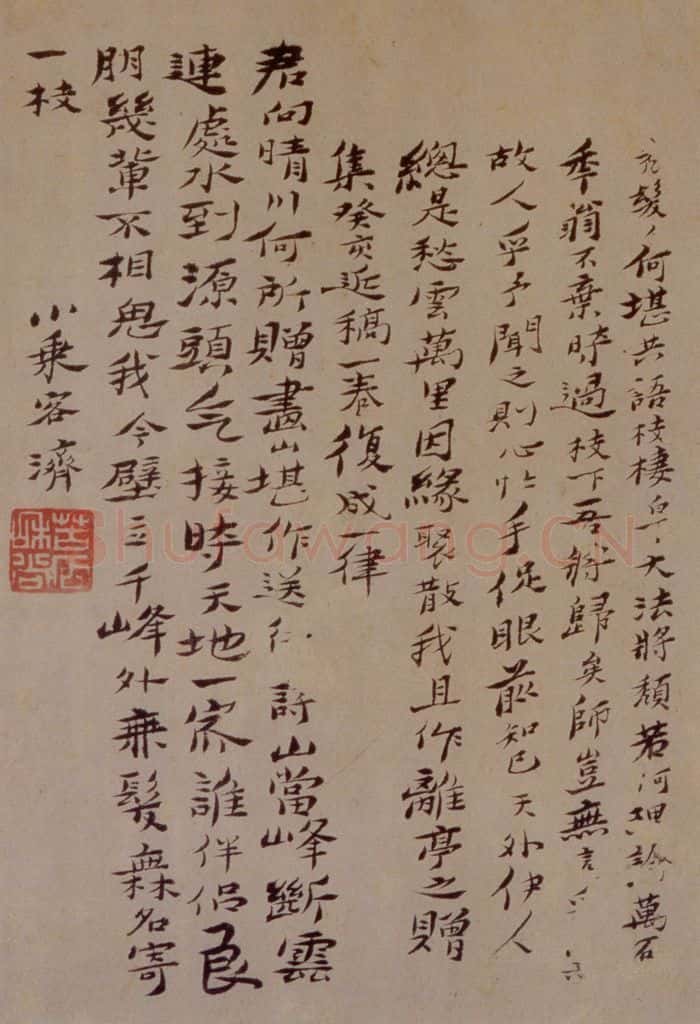 髮〻何堪共語枝棲大法將頹若河論萬石
季翁不棄時過枝下吾將歸矣師豈無言乎
故人乎予聞之則心忙手促眼前知已天外伊人
總是愁雲萬里因緣聚散我且作離亭之贈
集癸亥近稿一春復成一律
君向晴川何所贈畫山堪作送行詩山當峰斷雲
連處水到源頭气接時天地一家誰伴侶良
朋幾輩不相思我今壁立千峰外無髮無名寄
一枝
小乗客濟
苦瓜和尚
Shufawang.CN